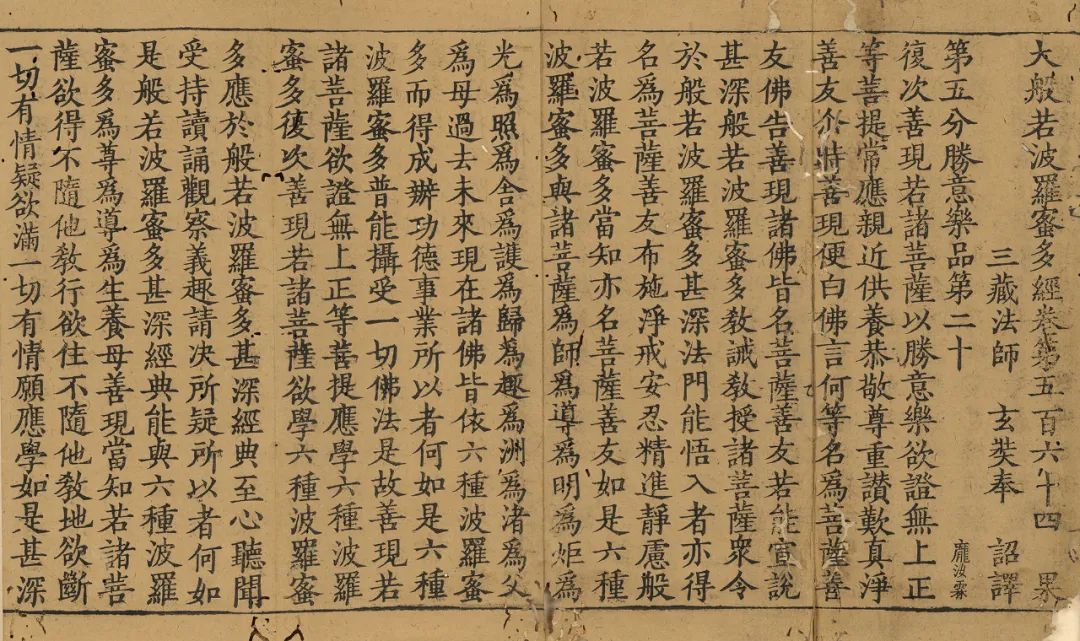 大般若波羅蜜多經卷第五百六十四 果
三藏法師 玄奘奉 詔譯
第五分勝意樂品第二十
復次善現若諸菩薩以勝意樂欲證無上正
等菩提常應親近供養恭敬尊重讃歎真淨
善友尒時善現便白佛言何等名為菩薩善
友佛告善現諸佛皆名菩薩善友若能宣說
甚深般若波羅蜜多教誡教授諸菩薩衆令
於般若波羅蜜多甚深法門能悟入者亦得
名為菩薩善友布施淨戒安忍精進靜慮般
若波羅蜜多當知亦名菩薩善友如是六種
波羅蜜多與諸菩薩為師為導為明為炬為
光為照為舍為護為歸為趣為洲為渚為父
為母過去未來現在諸佛皆依六種波羅蜜
多而得成辦功德事業所以者何如是六種
波羅蜜多普能攝受一切佛法是故善現若
諸菩薩欲證無上正等菩提應學六種波羅
蜜多復次善現若諸菩薩欲學六種波羅蜜
多應於般若波羅蜜多甚深經典至心聽聞
受持讀誦觀察義趣請决所疑所以者何如
是般若波羅蜜多甚深經典能與六種波羅
蜜多為尊為導為生養母善現當知若諸菩
薩欲得不隨他教行欲住不隨他教地欲斷
一切有情疑欲滿一切有情願應學如是甚深